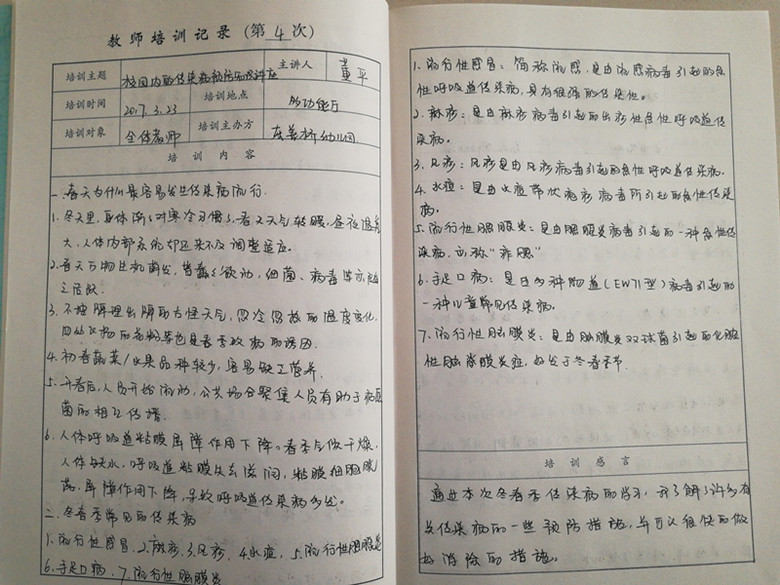 教师培训记录(第4次)
培训主题 校园内的传染病预防知识讲座 主讲人 董平
培训时间 2017.3.23 培训地点 多功能厅
培训对象 全体教师 培训主办方 在姜桥幼儿园
培训内容
一.春天为什么最容易发生传染病流行.
1.冬天里,身体渐渐对寒冷习惯了,春又天气转暖,昼夜温差
大,人体内部系统却还来不及调整适应.
2.春天万物生机萌发,皆蠢蠢欲动,细菌、病毒
之活跃.
3.不按牌理出牌的古怪天气,忽冷忽热的温度变化,
四处飞扬的花粉等也是春季致病的诱因.
4.初春蔬菜/水果品种较少,容易缺乏营养.
5.开春后,人员开始流动,公共场合聚集人员有助于病原
菌的相互传播.
6.人体呼吸道粘膜屏障作用下降。春季气候干燥,
人体缺水,呼吸道粘膜失去滋润,粘膜细胞脱
落,屏障作用下降,导致呼吸道传染病多发。
二.冬春季常见的传染病
1.流行性感冒.2.麻疹.3.风疹.4.水痘.5.流行性腮腺炎
6.手足口病.7.流行性脑膜炎
1.流行性感冒:简称流感,是由流感病毒引起的急
性呼吸道传染病,具有很强的传染性。
2.麻疹:是由麻疹病毒引起的出疹性急性呼吸道传
染病。
3.风疹:风疹是由风疹病毒引起的急性呼吸道传染病.
4.水痘:是由水痘带状疱疹病毒所引起的急性传染
病。
5.流行性腮腺炎:是由腮腺炎病毒引起的一种急性传
染病,也称"痄腮"
6.手足口病:是由多种肠道(EW71型)病毒引起的
一种儿童常见传染病.
7.流行性脑膜炎:是由脑膜炎双球菌引起的化脓
性脑脊膜炎症,好发于冬春季节.
培训感言
通过本次冬春季传染病的学习,我了解了许多有
关传染病的一些预防措施,并可以很快的做
好消除的措施。